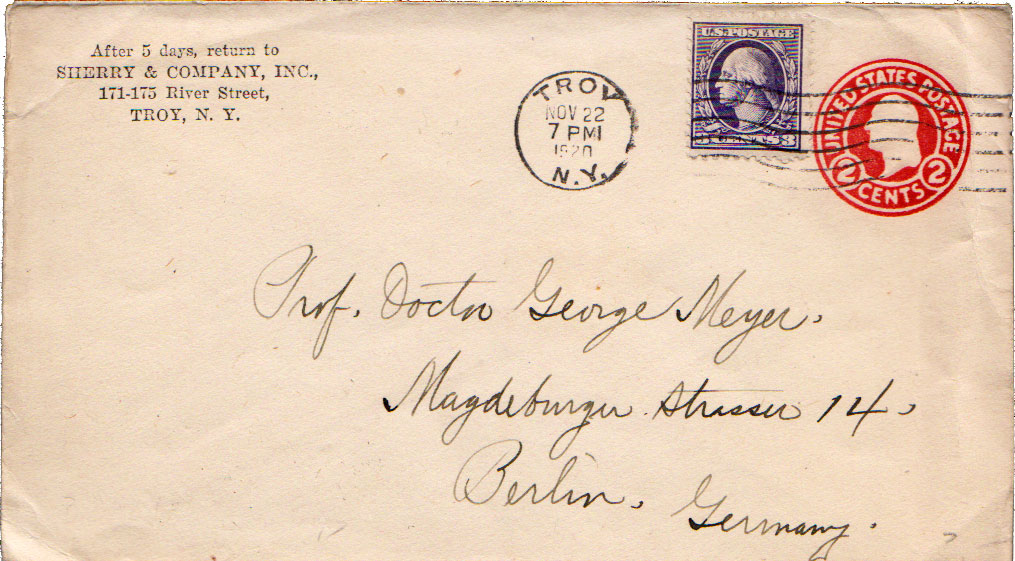 After 5 days, return to
SHERRY & COMPANY, INC.,
171-175 River Street,
TROY, N. Y.
TROY
NOV 22
7 PM
1920
N.Y.
U.S. POSTAGE
3 CENTS 3
UNITED STATES POSTAGE
2 CENTS 2
Prof. Doctor George Meyer.
Magdeburger Strasser 14.
Berlin. Germany.